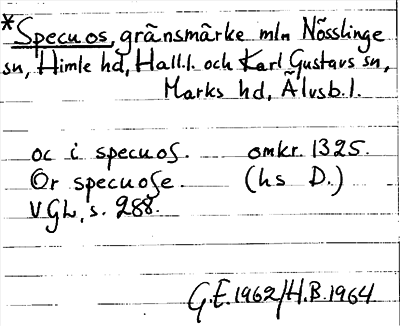 *Specuos, gränsmärke mln Nösslinge
sn, Himle hd, Hall.l. och Karl Gustavs sn,
Marks hd, Älvsb.l.
oc i specuos. omkr. 1325.
Or specuose. (hs D.)
VGL, s. 288.
G.E. 1962/H.B. 1964